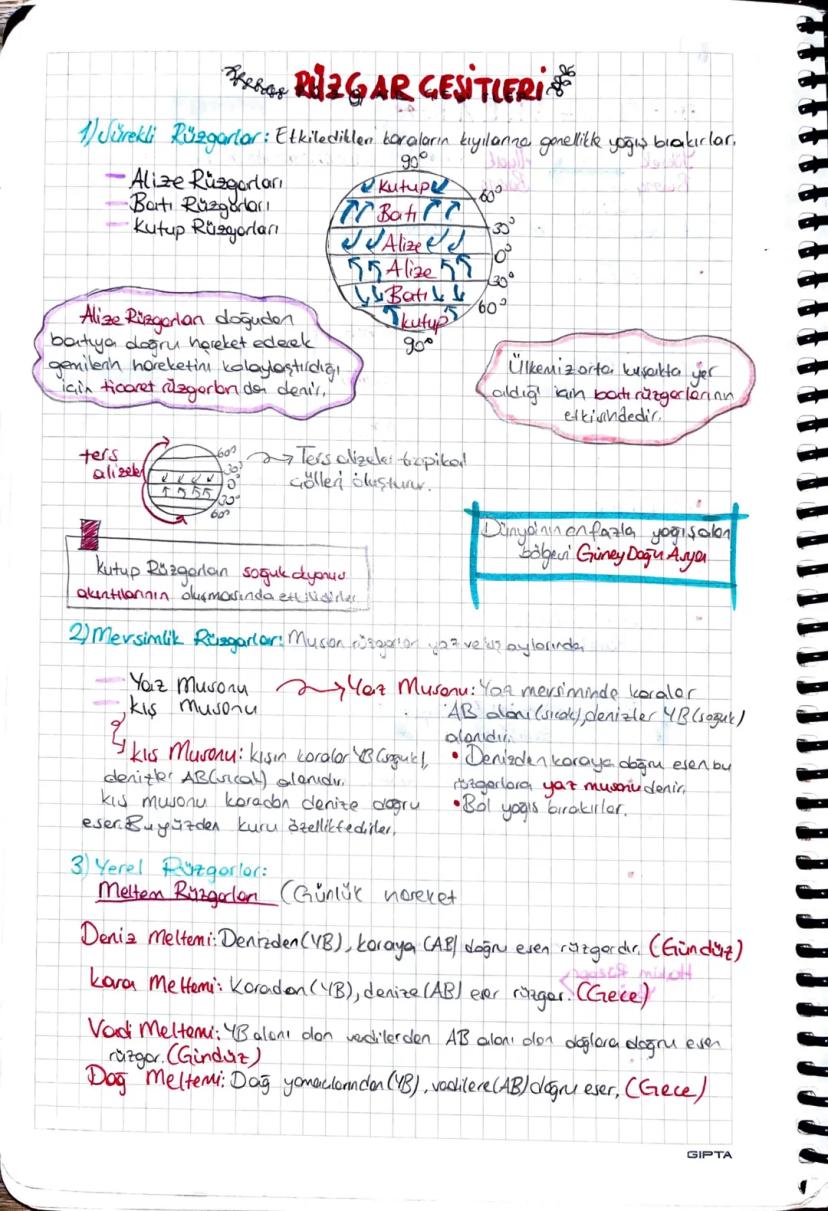 RÜZGAR ÇEŞİTLERİ
1) Sürekli Rüzgarlar: Etkiledikleri karaların kıyılarına genellikle yağış bırakırlar.
Alize Rüzgarları
Batı Rüzgarları
Kutup Rüzgarları
90°
Kutup
60°
Batı
30°
Alize
0°
Alize
30°
Batı
60°
Kutup
90°
Alize Rüzgarları doğudan
batıya doğru hareket ederek
gemilerin hareketini kolaylaştırdığı
için ticaret rüzgarları da denir.
Ülkemiz orta kuşakta yer
aldığı için batı rüzgarlarının
etkisindedir.
ters
alizeler
60°
30°
0°
30°
60°
Ters alizeler tropikal
çölleri oluşturur.
Dünya'nın en fazla yağış alan
bölgesi Güney Doğu Asya
Kutup Rüzgarları soğuk okyanus
akıntılarının oluşmasında etkilidirler
2) Mevsimlik Rüzgarlar: Muson rüzgarlar yaz ve kış aylarında
Yaz Musonu
Kış Musonu
Yaz Musonu: Yaz mevsiminde karalar
AB alanı (sıcak), denizler YB (soğuk)
alanıdır.
• Denizden karaya doğru esen bu
rüzgarlara yaz musonu denir.
• Bol yağış bırakırlar.
Kış Musonu: Kışın karalar YB (soğuk),
denizler AB (sıcak) alanıdır.
Kış musonu karadan denize doğru
eser. Bu yüzden kuru özelliktedirler.
3) Yerel Rüzgarlar:
Meltem Rüzgarları (Günlük hareket
Deniz Meltemi: Denizden (YB), karaya (AB) doğru esen rüzgardır. (Gündüz)
Kara Meltemi: Karadan (YB), denize (AB) eser rüzgar. (Gece)
Vadi Meltemi: YB alanı olan vadilerden AB alanı olan dağlara doğru esen
rüzgar. (Gündüz)
Dağ Meltemi: Dağ yamaçlarından (YB), vadilere (AB) doğru eser. (Gece)
GIPTA